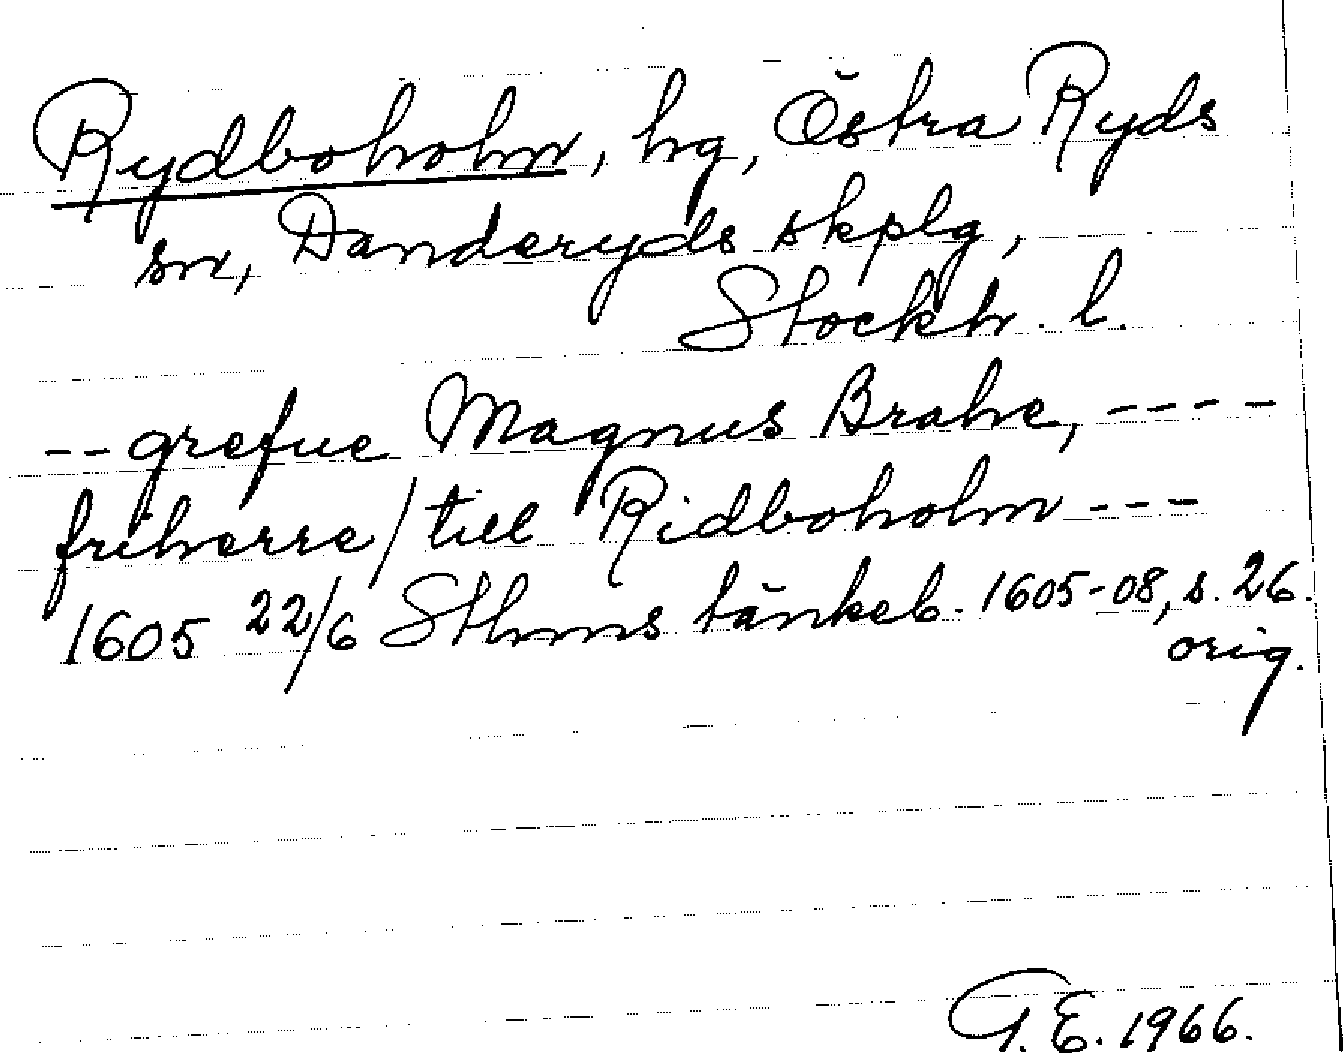 Rydboholm, hg, Östra Ryds
sn, Danderyds skplg,
Stockh. l.
-- grefue Magnus Brahe, ----
friherre / till Ridboholm ---
1605 22/6 Sthms tänkeb. 1605-08, s. 26.
orig.
G.E. 1966.